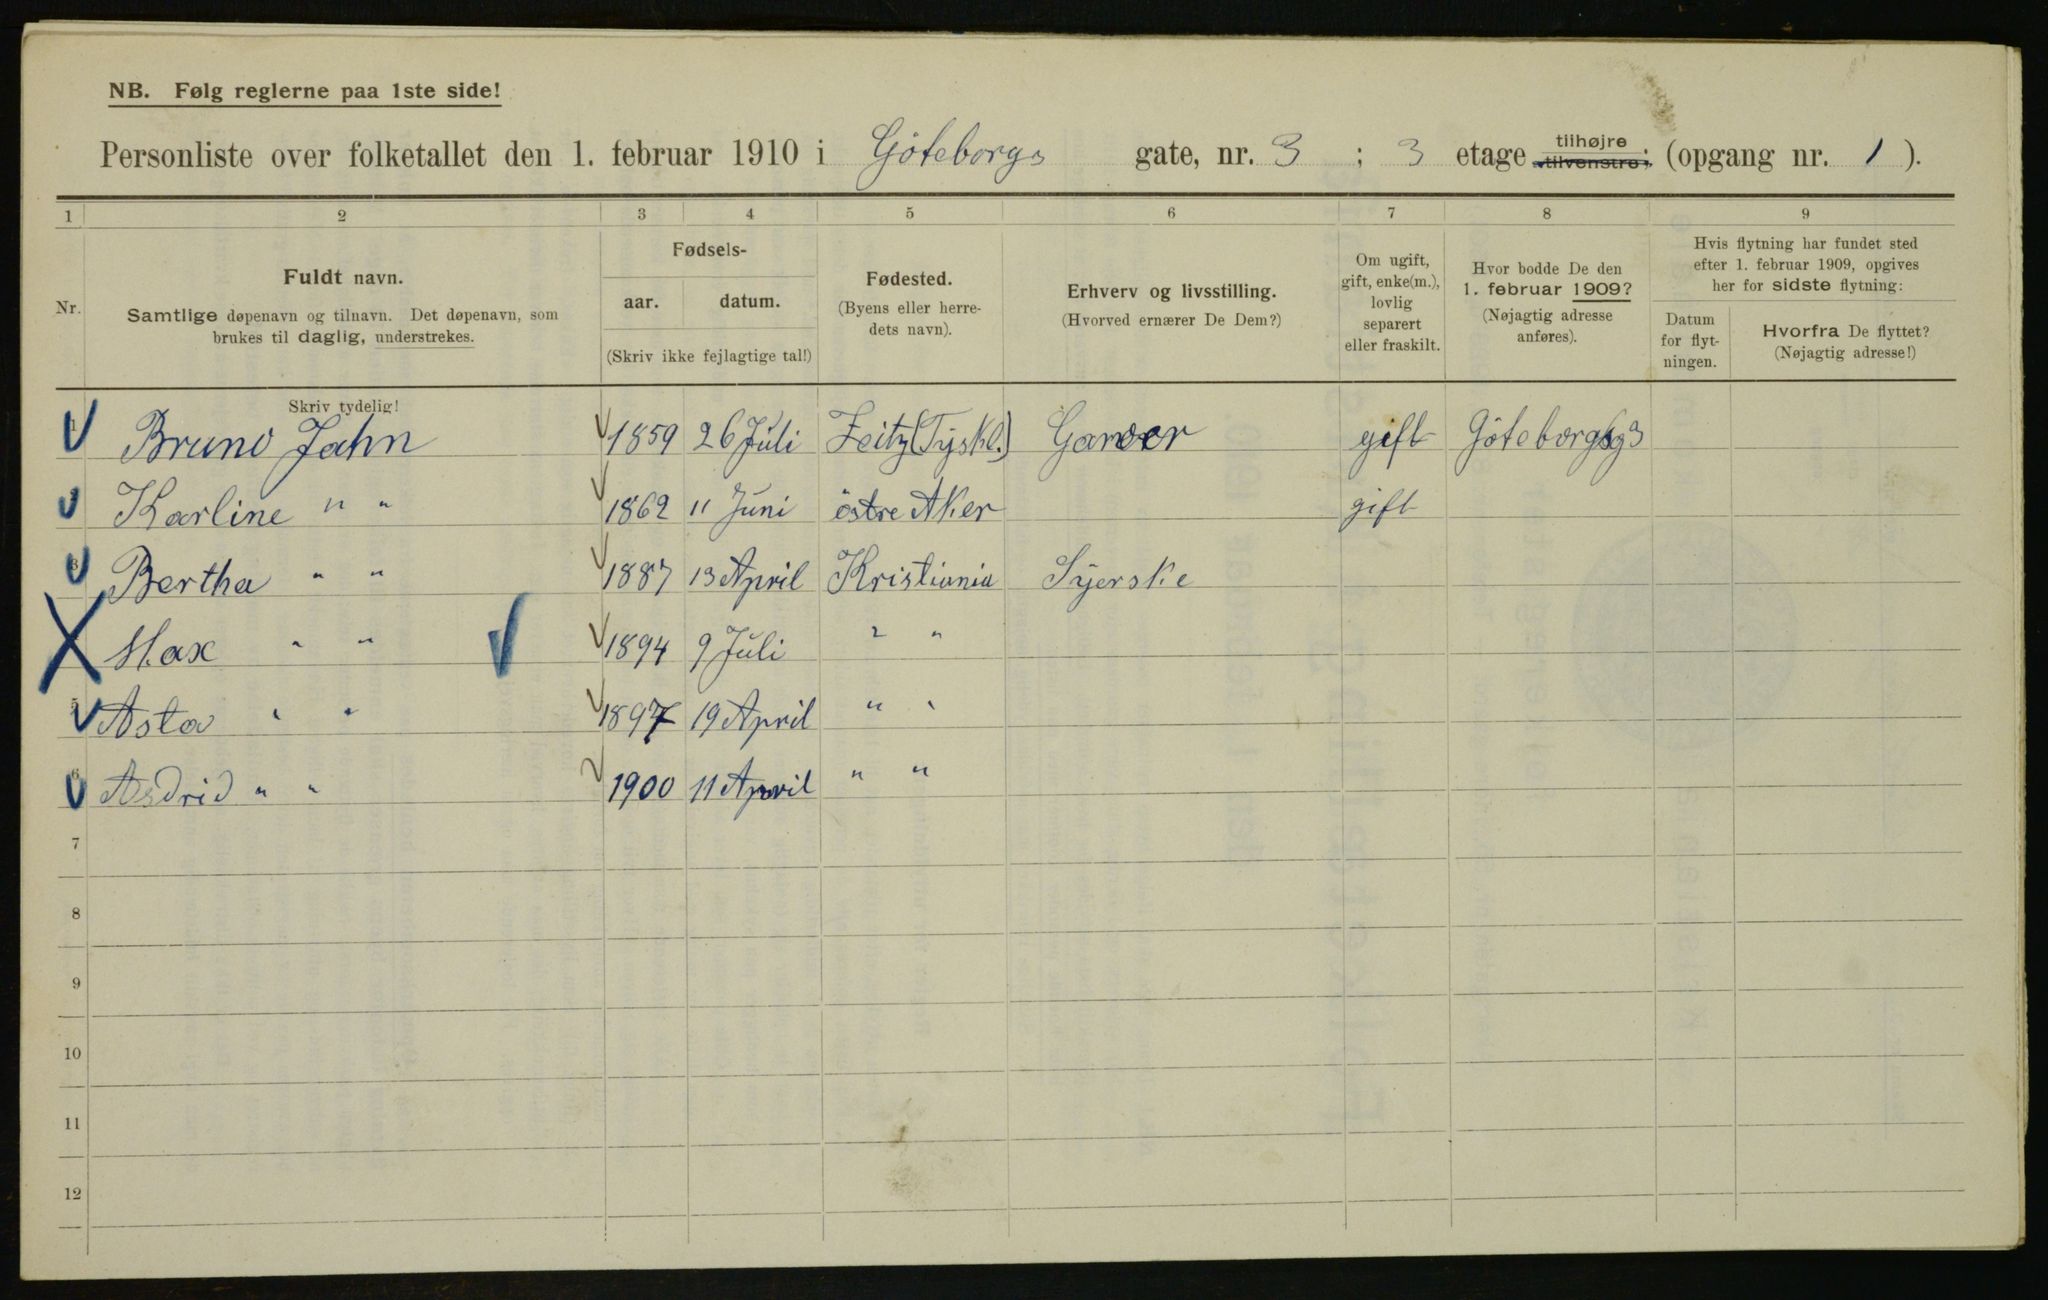 NB. Følg reglerne paa 1ste side!
Personliste over folketallet den 1. februar 1910 i Göteborgs gate, nr. 3 ; 3 etage tilhøjre tilvenstre; (opgang nr. 1 ).
1 2 3 4 5 6 7 8 9
Nr.
Fuldt navn.
Samtlige døpenavn og tilnavn. Det døpenavn, som
brukes til daglig, understrekes.
Skriv tydelig!
Fødsels-
aar. datum.
(Skriv ikke fejlagtige tal!)
Fødested.
(Byens eller herre-
dets navn).
Erhverv og livsstilling.
(Hvorved ernærer De Dem?)
Om ugift,
gift, enke(m.),
lovlig
separert
eller fraskilt.
Hvor bodde De den
1. februar 1909?
(Nøjagtig adresse
anføres).
Hvis flytning har fundet sted
efter 1. februar 1909, opgives
her for sidste flytning:
Datum
for flyt-
ningen.
Hvorfra De flyttet?
(Nøjagtig adresse!)
1 Bruno Jahn 1859 26 Juli Zeitz (Tyskl.) Garver gift Göteborgsg 3
Karline " " 1862 11 Juni östre Aker gift
3 Bertha " " 1887 13 April Kristiania Syerske
Max " " 1894 9 Juli " "
5 Asta " " 1897 19 April " "
6 Asdrid " " 1900 11 April " "
7
8
9
10
11
12